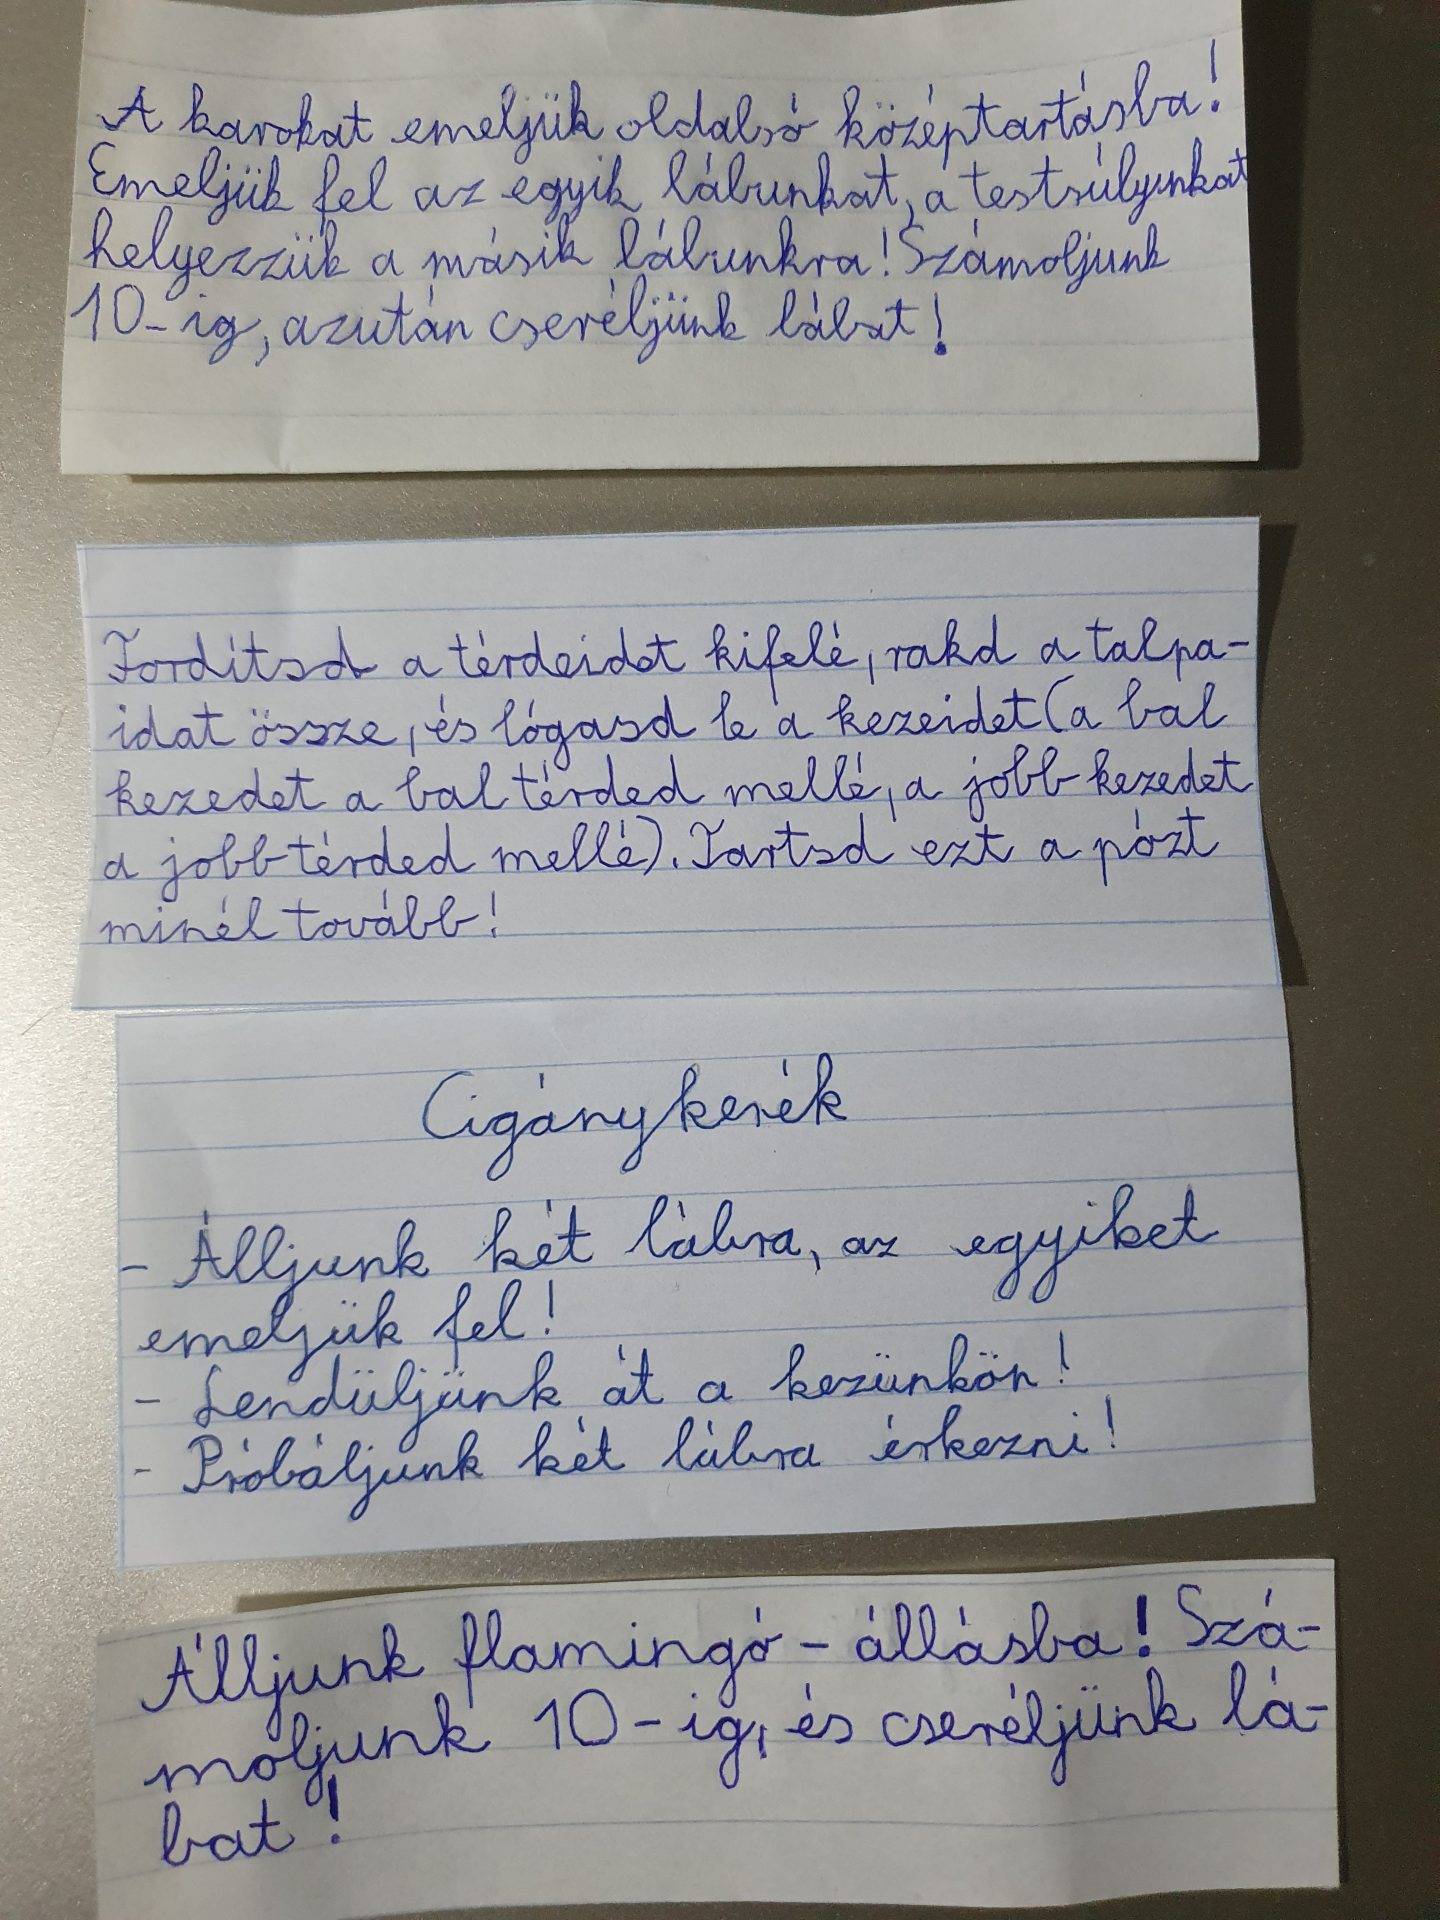 A karokat emeljük oldalsó középtartásba!
Emeljük fel az egyik lábunkat, a testsúlyunkat
helyezzük a másik lábunkra! Számoljunk
10-ig, azután cseréljünk lábat!
Fordítsd a térdeidet kifelé, rakd a talpa-
idat össze, és lógasd le a kezeidet (a bal
kezedet a bal térded mellé, a jobb kezedet
a jobb térded mellé). Tartsd ezt a pózt
minél tovább!
Cigánykerék
- Álljunk két lábra, az egyiket
emeljük fel!
- Lendüljünk át a kezünkön!
- Próbáljunk két lábra érkezni!
Álljunk flamingó-állásba! Szá-
moljunk 10-ig, és cseréljünk lá-
bat!